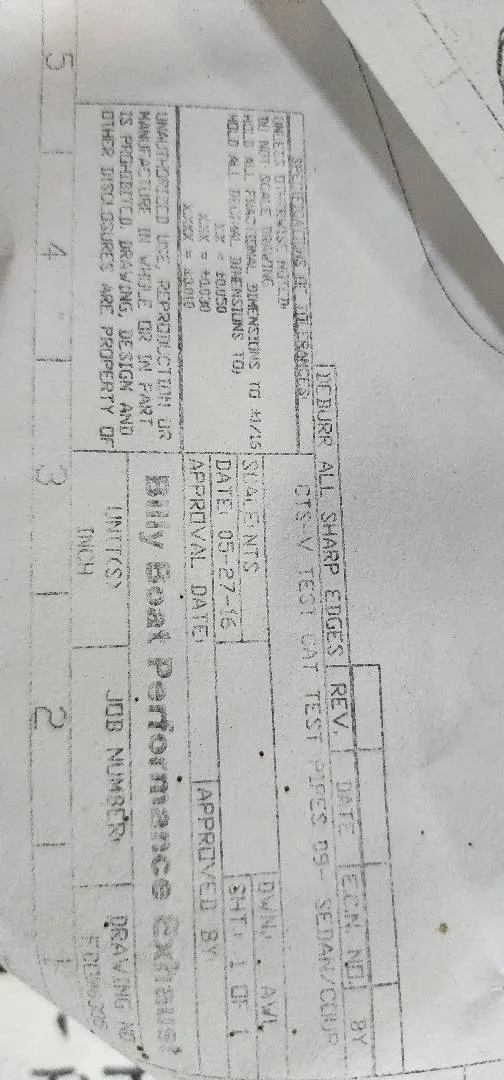 DEBURR ALL SHARP EDGES
REV. DATE E.C.N NO. BY
SPECIFICATIONS OF TOLERANCES
UNLESS OTHERWISE NOTED:
DO NOT SCALE DRAWING
HOLD ALL FRACTIONAL DIMENSIONS TO ±1/16
HOLD ALL DECIMAL DIMENSIONS TO,
X.X = ±0.050
X.XX = ±0.030
X.XXX = ±0.010
UNAUTHORIZED USE, REPRODUCTION OR
MANUFACTURE IN WHOLE OR IN PART
IS PROHIBITED. DRAWING, DESIGN AND
OTHER DISCLOSURES ARE PROPERTY OF
CTS-V TEST CAT TEST PIPES 09- SEDAN/COUP
SCALE: NTS
DWN: AWL
DATE: 05-27-16
SHT: 1 OF 1
APPROVAL DATE:
APPROVED BY
Billy Boat Performance Exhaust
UNIT(S)
INCH
JOB NUMBER:
DRAWING NO
5 4 3 2 1